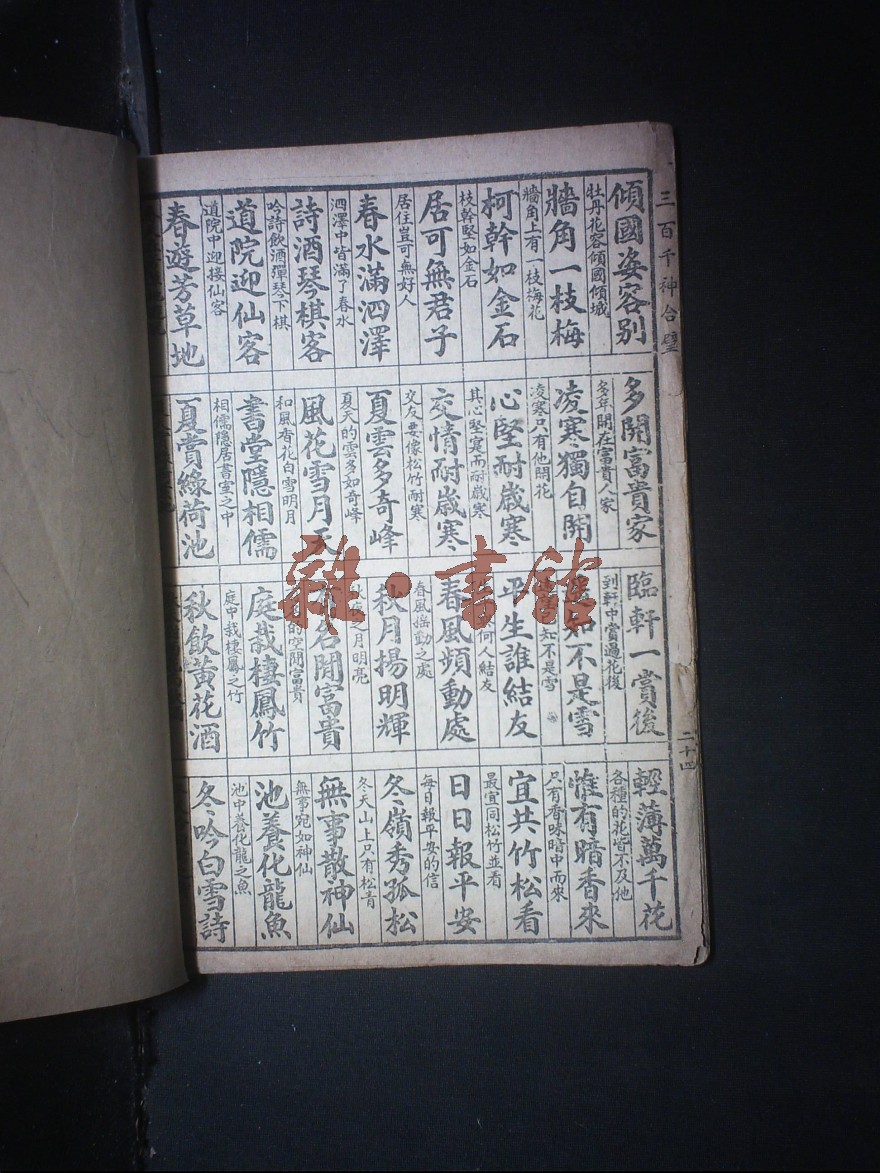 三百千神合璧
二十四
傾國姿容別
多開富貴家
臨軒一賞後
輕薄萬千花
牡丹花容傾國傾城
多年開在富貴人家
到軒中賞過花後
各種的花皆不及他
牆角一枝梅
凌寒獨自開
知不是雪
惟有暗香來
牆角上有一枝梅花
凌寒只有他開花
知不是雪
只有香味暗中而來
柯幹如金石
心堅耐歲寒
平生誰結友
宜共竹松看
枝幹堅如金石
其心堅寔而耐歲寒
何人結友
最宜同松竹並看
居可無君子
交情耐歲寒
春風頻動處
日日報平安
居住豈可無好人
交友要像松竹耐寒
春風搖動之處
每日報平安的信
春水滿泗澤
夏雲多奇峰
秋月揚明輝
冬嶺秀孤松
泗澤中皆滿了春水
夏天的雲多如奇峰
之月明亮
冬天山上只有松青
詩酒琴棋客
風花雪月天
有名閒富貴
無事散神仙
吟詩飲酒彈琴下棋
和風香花白雪明月
的空閒富貴
無事宛如神仙
道院迎仙客
書堂隱相儒
庭栽棲鳳竹
池養化龍魚
道院中迎接仙客
相儒隱居書室之中
庭中栽棲鳳之竹
池中養化龍之魚
春遊芳草地
夏賞綠荷池
秋飲黃花酒
冬吟白雪詩
雜·書館